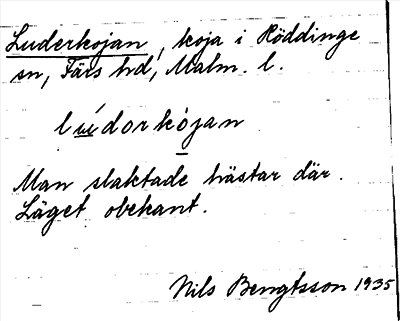 Luderkojan, koja i Röddinge
sn, Färs hd, Malm. l.
lúdorkòjan
Man slaktade hästar där.
Läget obekant.
Nils Bengtsson 1935